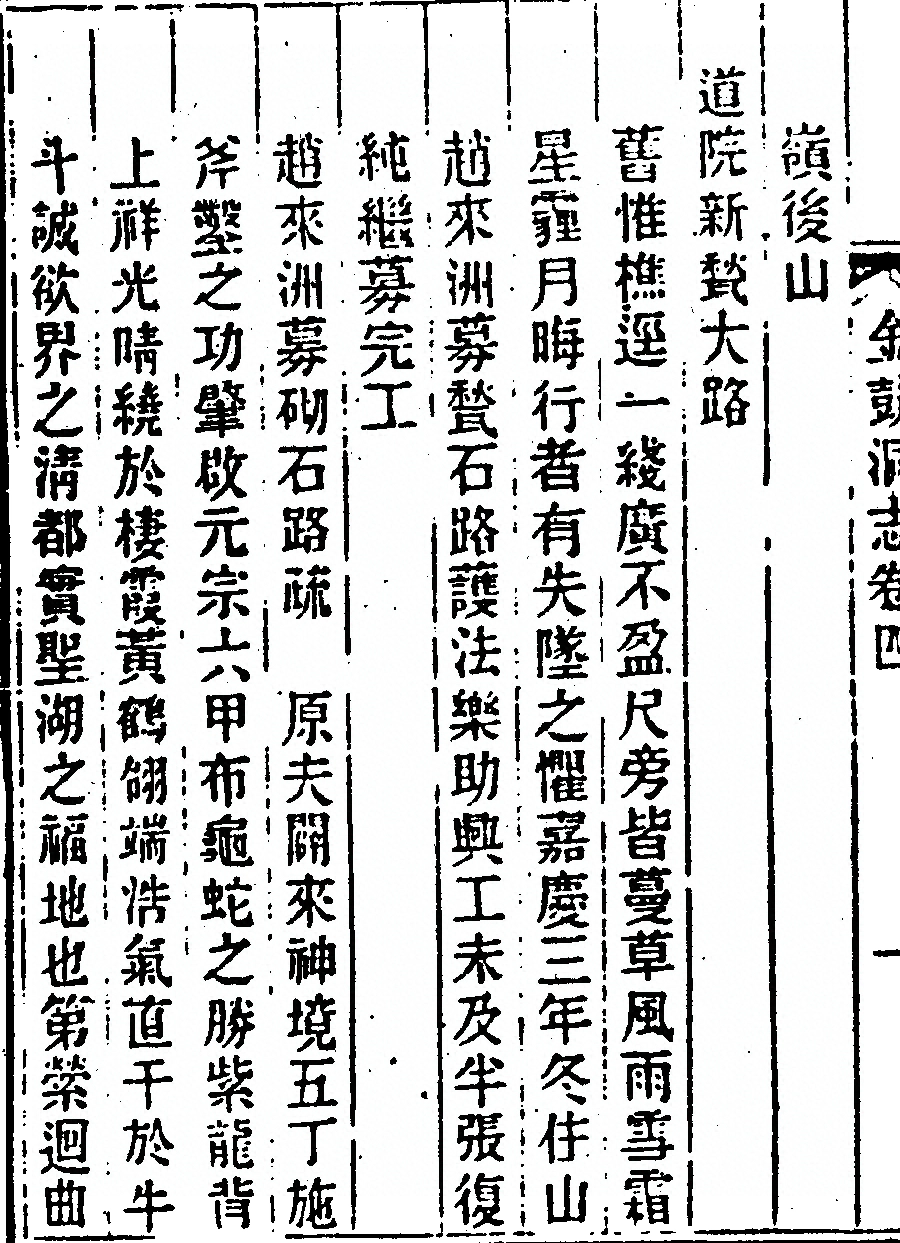 金鼓洞志卷四
一
嶺後山
道院新甃大路
舊惟樵逕一綫廣不盈尺旁皆蔓草風雨雪霜
星霾月晦行者有失墜之懼嘉慶三年冬住山
趙來洲募甃石路護法樂助興工未及半張復
純繼募完工
趙來洲募砌石路疏　原夫闢來神境五丁施
斧鑿之功肇啟元宗六甲布龜蛇之勝紫龍背
上祥光晴繞於棲霞黃鶴翎端浩氣直干於牛
斗誠欲界之清都實聖湖之福地也第縈迴曲